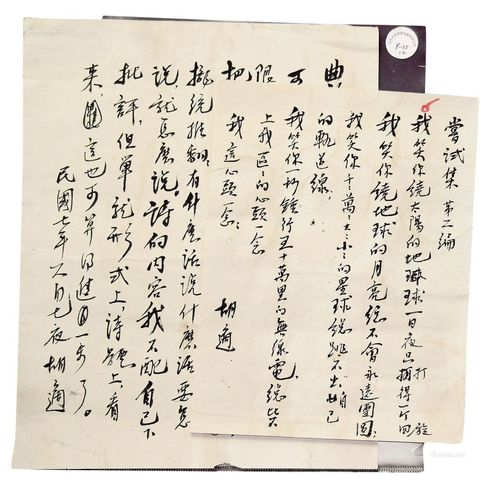 嘗試集 第二編
我笑你繞太陽的地球一日夜只打得一个回旋
我笑你繞地球的月亮總不會永遠團圓;
我笑你千萬大小的星球總跳不出自己
的軌道線,
我笑你一秒鐘行五十萬里的無線電,總比不
上我區區的心頭一念
我這心頭一念:
胡適
典
可
限
把
攏統推翻。有什麽話說什麽話要怎
說,就怎麽說。詩的内容我不配自己下
批評,但單就形式上,詩體上看
来這也可算得進一步了。
民國七年六月七夜胡適